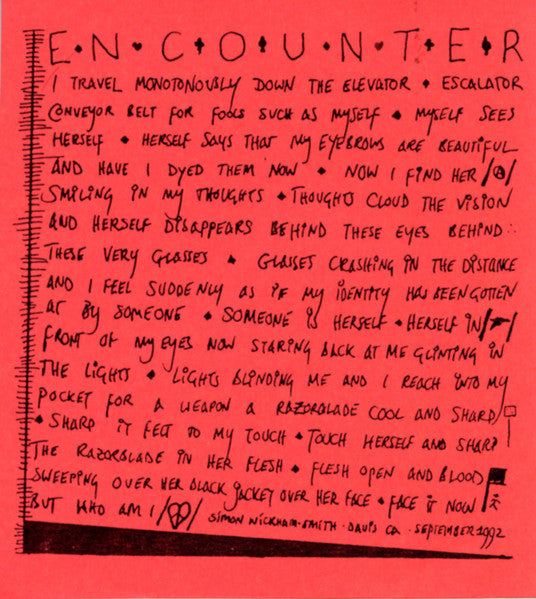 E · N · C · O · U · N · T · E · R
I TRAVEL MONOTONOUSLY DOWN THE ELEVATOR · ESCALATOR
CONVEYOR BELT FOR FOOLS SUCH AS MYSELF · MYSELF SEES
HERSELF · HERSELF SAYS THAT MY EYEBROWS ARE BEAUTIFUL
AND HAVE I DYED THEM NOW · NOW I FIND HER
SMILING IN MY THOUGHTS · THOUGHTS CLOUD THE VISION
AND HERSELF DISAPPEARS BEHIND THESE EYES BEHIND
THESE VERY GLASSES · GLASSES CRASHING IN THE DISTANCE
AND I FEEL SUDDENLY AS IF MY IDENTITY HAS BEEN GOTTEN
AT BY SOMEONE · SOMEONE IS HERSELF · HERSELF IN
FRONT OF MY EYES NOW STARING BACK AT ME GLINTING IN
THE LIGHTS · LIGHTS BLINDING ME AND I REACH INTO MY
POCKET FOR A WEAPON A RAZORBLADE COOL AND SHARP
· SHARP IT FELT TO MY TOUCH · TOUCH HERSELF AND SHARP
THE RAZORBLADE IN HER FLESH · FLESH OPEN AND BLOOD
SWEEPING OVER HER BLACK JACKET OVER HER FACE · FACE IT NOW
BUT WHO AM I
SIMON WICKHAM-SMITH · DAVIS CA · SEPTEMBER 1992